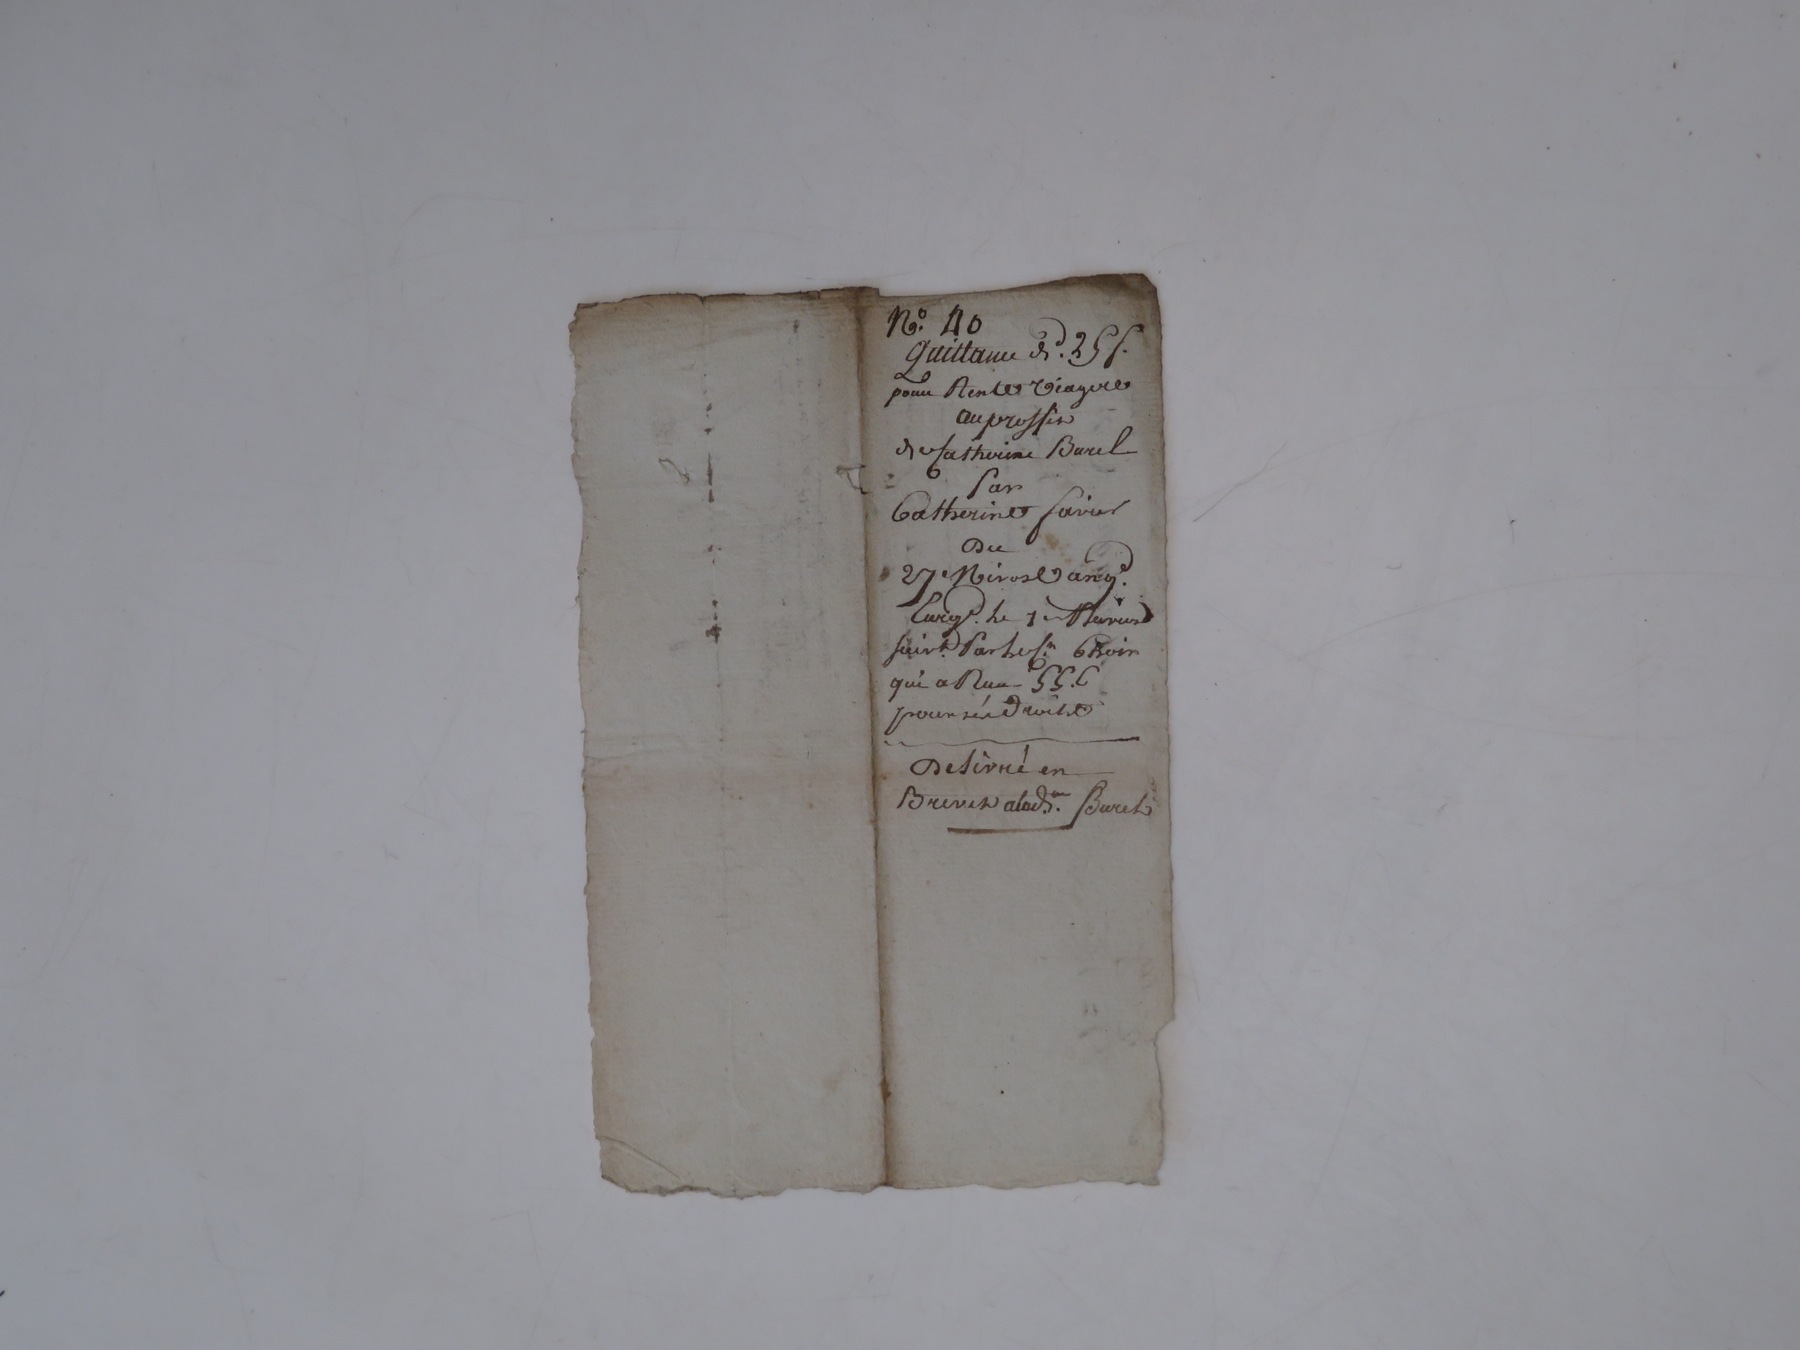 N.º 40
Quittance de. 25 f.
pour Rente viagere
au proffit
de Catherine Barel
Par
Catherine favier
Du
27e Nivose an 9e.
Enregé. le 1er Pluviose
suivt. Par le Cn. Choin
qui a Recu 55 c
pour ses Droits
Delivré en
Brevet a lade. Barel